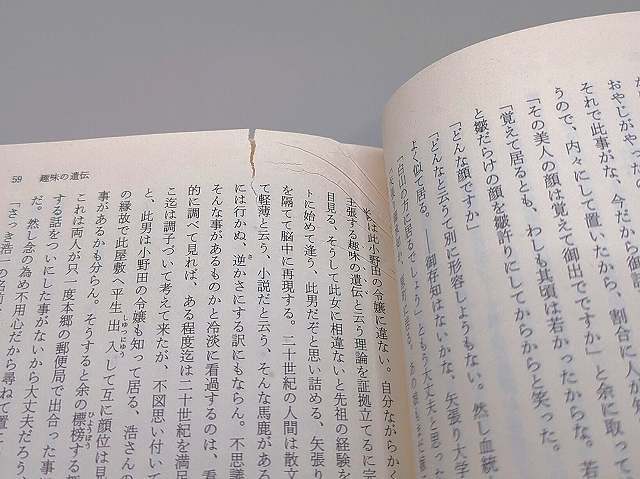 おやじがやつ
それで此事がな、今だから御話
うので、内々にして置いたから、割合に人が知
「その美人の顔は覚えて御出でですか」と余に取って
「覚えて居るとも、わしも其頃は若かったからな。若
と皺だらけの顔を皺許りにしてからからと笑った。
「どんな顔ですか」
「どんなと云うて別に形容しようもない。然し血統
よく似て居る。――御存知はないかな、矢張り大学
「白山の方に居るでしょう」ともう大丈夫と思った
59 趣味の遺伝
米は此小野田の令嬢に違ない。自分ながらかく
主張する趣味の遺伝と云う理論を証拠立てるに完
目見る、そうして此女に相違ないと先祖の経験を
トに始めて逢う、此男だぞと思い詰める、矢張り
を隔てて脳中に再現する。二十世紀の人間は散文
て軽薄と云う、小説だと云う、そんな馬鹿がある
には行かぬ、逆かさにする訳にもならん。不思議
そんな事があるものかと冷淡に看過するのは、看
的に調べて見れば、ある程度迄は二十世紀を満足
こ迄は調子づいて考えて来たが、不図思い付いて
と、此男は小野田の令嬢も知って居る、浩さんの
の縁故で此屋敷へ平生出入して互に顔位は見
しゅつにゅう
事があるかも分らん。そうすると余の標榜する
ひょうぼう
これは両人が只一度本郷の郵便局で出合った事
する話をついにした事がないから大丈夫だろう、
だ。然し念の為め不用心だから尋ねて置こ
「さっき浩一の名前